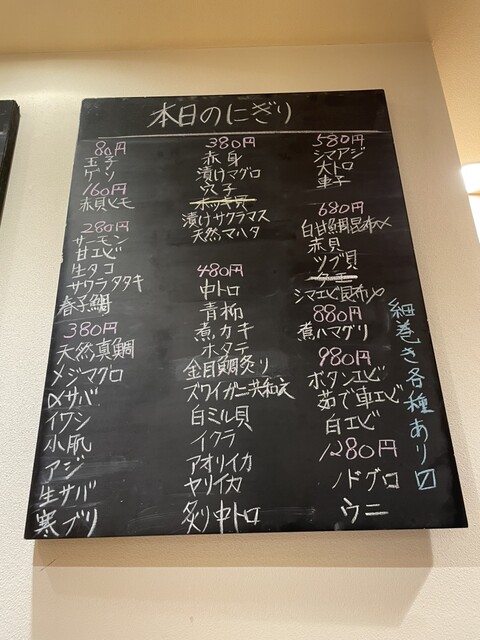 本日のにぎり
80円
玉子
ゲソ
160円
赤貝ヒモ
280円
サーモン
甘エビ
生タコ
サワラタタキ
春子鯛
380円
天然真鯛
メジマグロ
〆サバ
イワシ
小肌
アジ
生サバ
寒ブリ
380円
赤身
漬けマグロ
穴子
ホッキ貝
漬けサクラマス
天然マハタ
480円
中トロ
青柳
煮カキ
ホタテ
金目鯛炙り
ズワイガニ共和え
白ミル貝
イクラ
アオリイカ
ヤリイカ
炙り中トロ
580円
シマアジ
大トロ
車子
680円
白甘鯛昆布〆
赤貝
ツブ貝
シマエビ昆布〆
880円
煮ハマグリ
980円
ボタンエビ
茹で車エビ
白エビ
1280円
ノドグロ
ウニ
細巻き各種あり〼